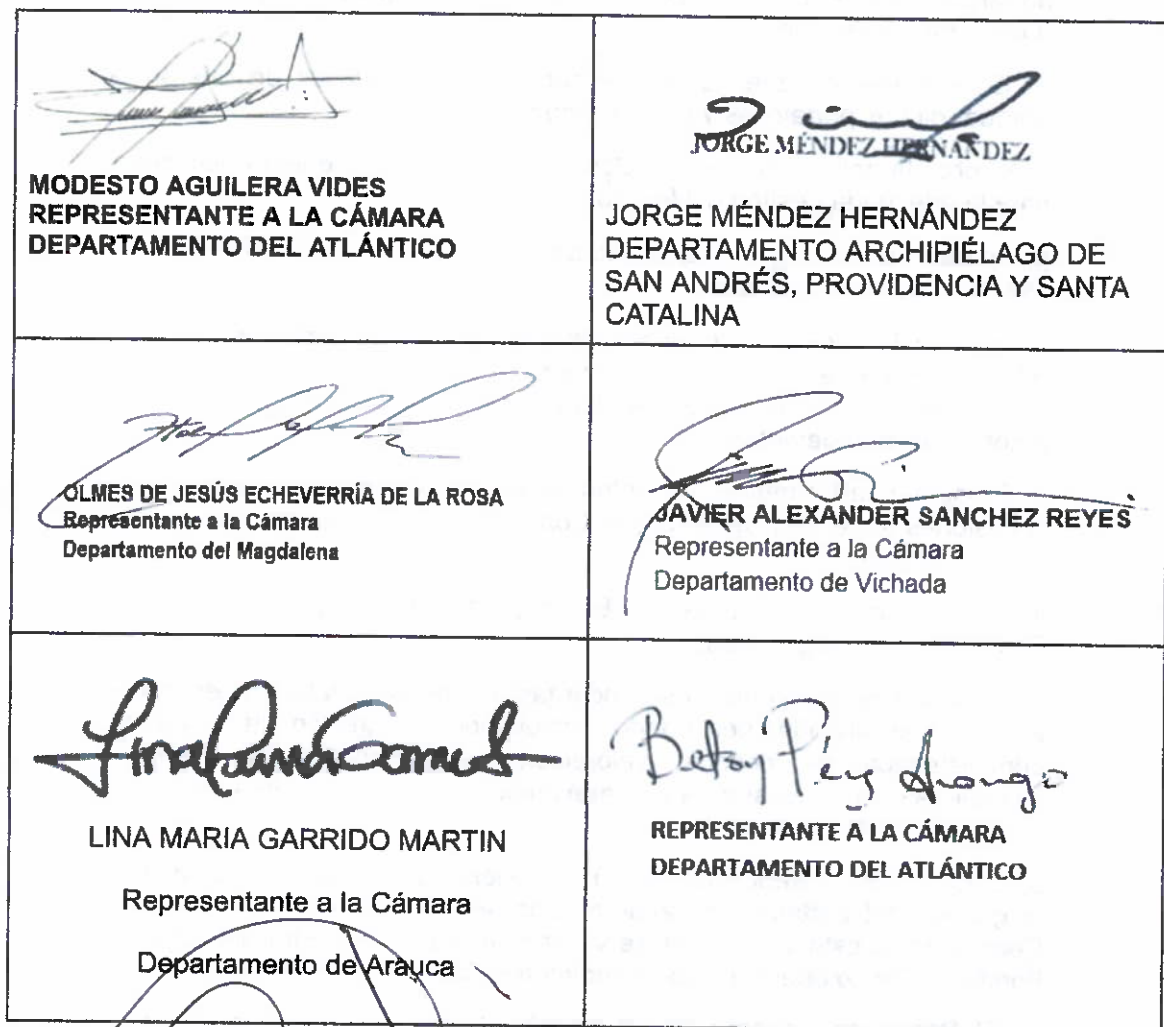 MODESTO AGUILERA VIDES
REPRESENTANTE A LA CÁMARA
DEPARTAMENTO DEL ATLÁNTICO
JORGE MÉNDEZ HERNÁNDEZ
JORGE MÉNDEZ HERNÁNDEZ
DEPARTAMENTO ARCHIPIÉLAGO DE
SAN ANDRÉS, PROVIDENCIA Y SANTA
CATALINA
OLMES DE JESÚS ECHEVERRÍA DE LA ROSA
Representante a la Cámara
Departamento del Magdalena
JAVIER ALEXANDER SANCHEZ REYES
Representante a la Cámara
Departamento de Vichada
LINA MARIA GARRIDO MARTIN
Representante a la Cámara
Departamento de Arauca
Betsy
REPRESENTANTE A LA CÁMARA
DEPARTAMENTO DEL ATLÁNTICO